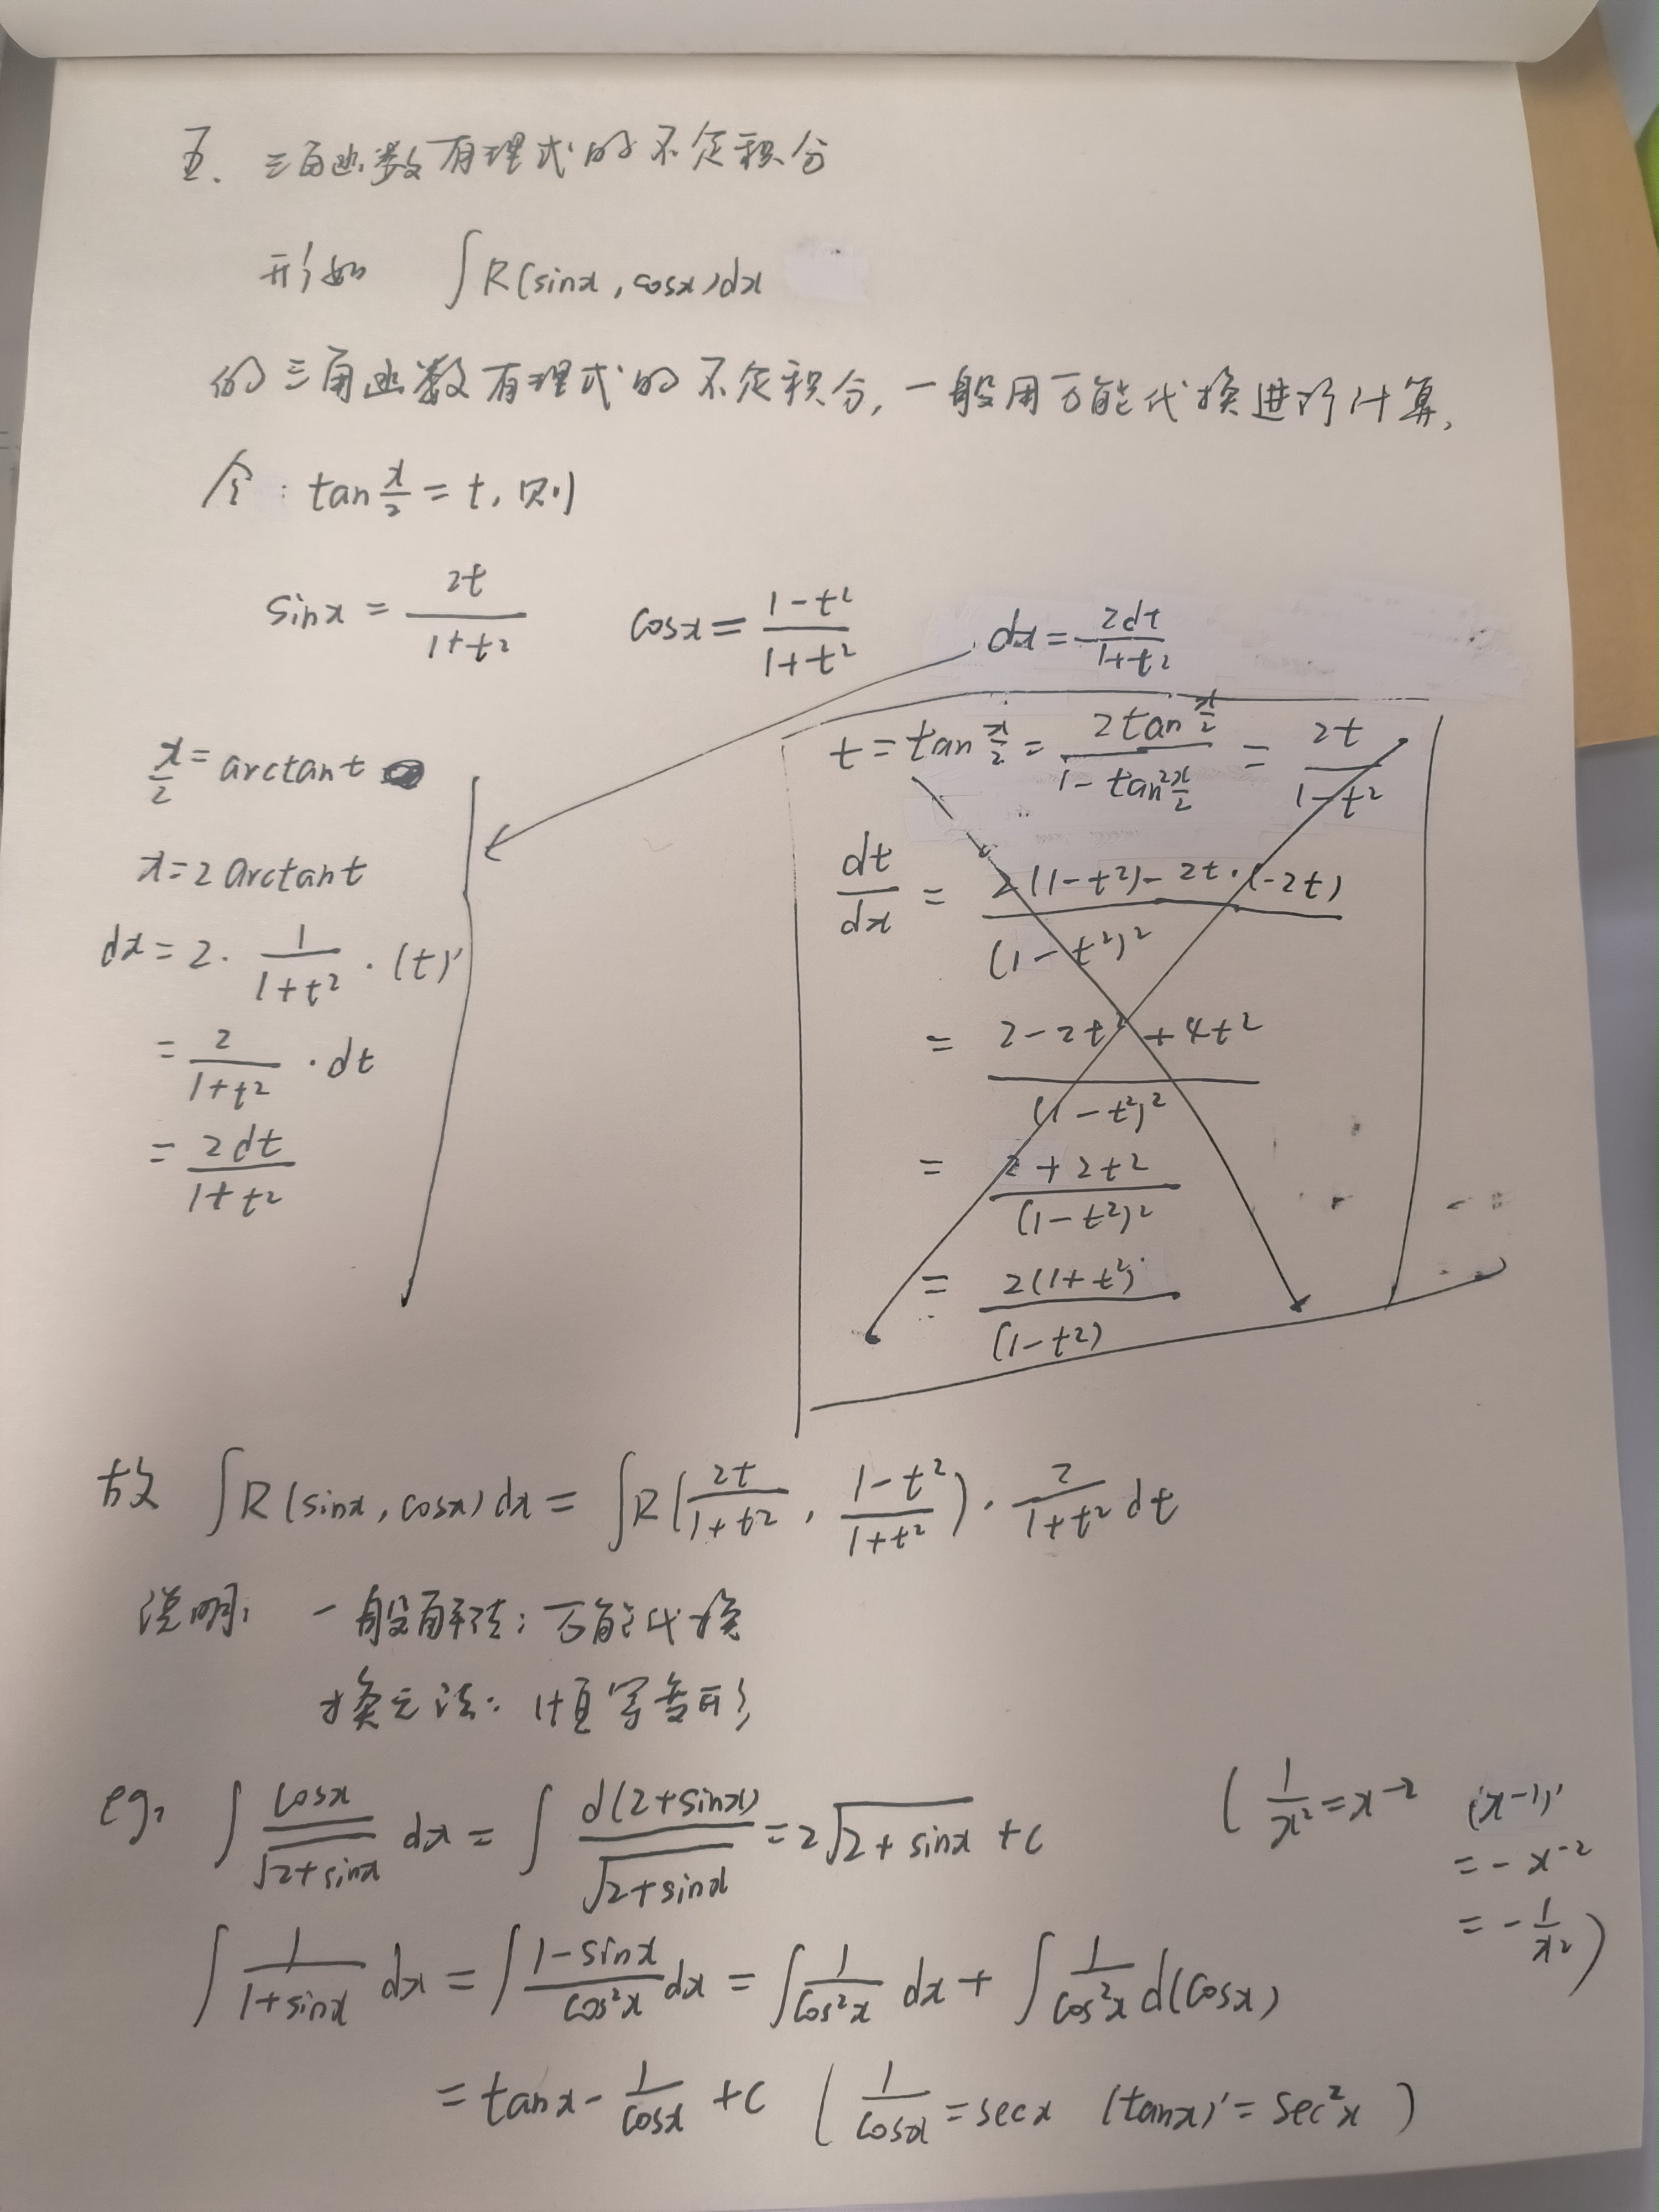 五、三角函数有理式的不定积分
形如 ∫R(sinx,cosx)dx
的三角函数有理式的不定积分,一般用万能代换进行计算,
令:tan x/2 = t,则
sinx = 2t/(1+t²) cosx = (1-t²)/(1+t²) dx = 2dt/(1+t²)
x/2 = arctant
x = 2arctant
dx = 2·1/(1+t²)·(t)'
= 2/(1+t²)·dt
= 2dt/(1+t²)
t = tan x/2 = 2tan x/2/(1-tan² x/2) = 2t/(1-t²)
dt/dx = (2(1-t²)-2t·(-2t))/(1-t²)²
= (2-2t²+4t²)/(1-t²)²
= (2+2t²)/(1-t²)²
= 2(1+t²)/(1-t²)
故 ∫R(sinx,cosx)dx = ∫R(2t/(1+t²),(1-t²)/(1+t²))·2/(1+t²)dt
说明:一般解法:万能代换
换元法:恒等变形
eg, ∫cosx/√(2+sinx) dx = ∫d(2+sinx)/√(2+sinx) = 2√(2+sinx) +C
(1/x² = x⁻² (x⁻¹)'
= -x⁻²
= -1/x²)
∫1/(1+sinx) dx = ∫(1-sinx)/cos²x dx = ∫1/cos²x dx + ∫1/cos²x d(cosx)
= tanx - 1/cosx +C (1/cosx = secx (tanx)' = sec²x)